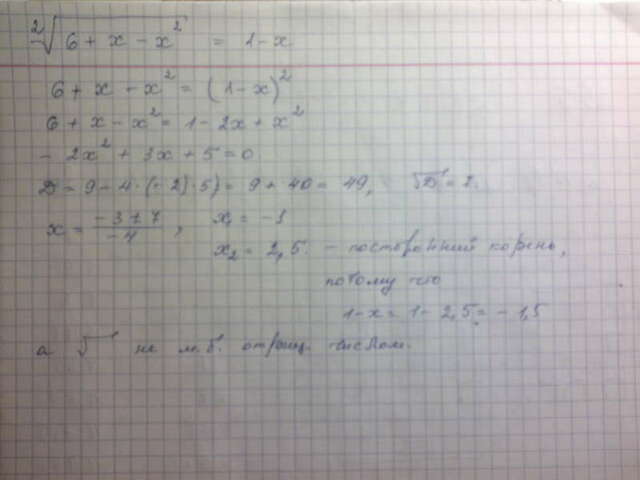 ²√(6 + x - x²) = 1 - x
6 + x - x² = (1 - x)²
6 + x - x² = 1 - 2x + x²
- 2x² + 3x + 5 = 0
D = 9 - 4 · (- 2) · 5) = 9 + 40 = 49, √D = 7.
x = (-3 ± 7)/(-4), x₁ = -1
x₂ = 2,5. - посторонний корень,
потому что
1 - x = 1 - 2,5 = - 1,5
а √ не м.б. отриц. числом.